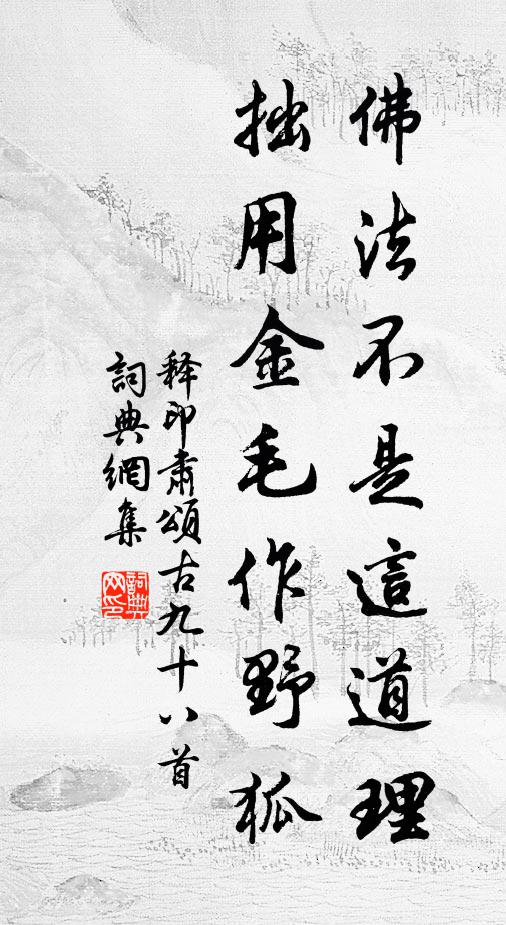 佛法不是這道理
拙用金毛作野狐
释印肅頌古九十八首
詞典網集
詞典网印